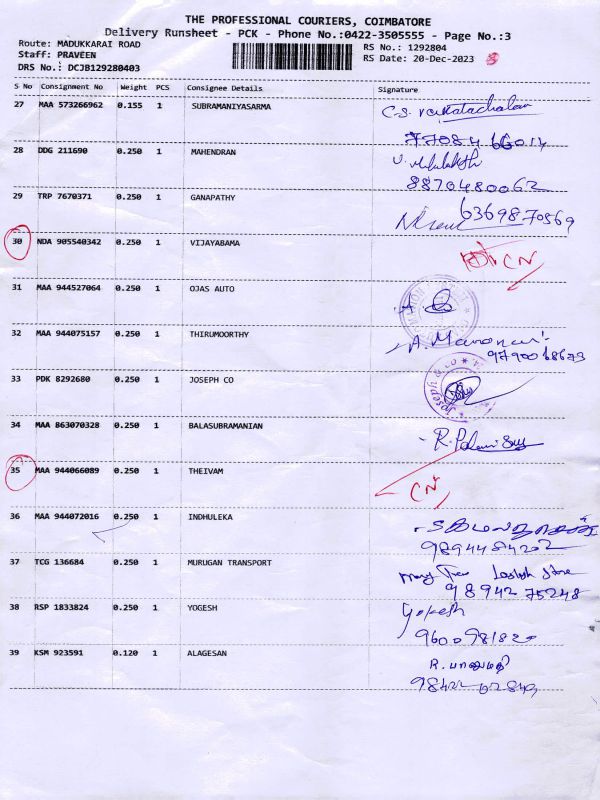 THE PROFESSIONAL COURIERS, COIMBATORE
Delivery Runsheet - PCK - Phone No.:0422-3505555 - Page No.:3
Route: MADUKKARAI ROAD RS No.: 1292804
Staff: PRAVEEN RS Date: 20-Dec-2023
DRS No.: DCJB129280403
S No Consignment No Weight PCS Consignee Details Signature
27 MAA 573266962 0.155 1 SUBRAMANIYASARMA C-S. Venkatachalam
28 DDG 211690 0.250 1 MAHENDRAN
8870480062
29 TRP 7670371 0.250 1 GANAPATHY 6369870569
30 NDA 905540342 0.250 1 VIJAYABAMA CN
31 MAA 944527064 0.250 1 OJAS AUTO
32 MAA 944075157 0.250 1 THIRUMOORTHY A. Manonmani
9790068673
33 PDK 8292680 0.250 1 JOSEPH CO Joseph & Co
34 MAA 863070328 0.250 1 BALASUBRAMANIAN R. Palani
35 MAA 944066089 0.250 1 THEIVAM CN
36 MAA 944072016 0.250 1 INDHULEKA
37 TCG 136684 0.250 1 MURUGAN TRANSPORT Store
98942 75248
38 RSP 1833824 0.250 1 YOGESH Yokesh
39 KSM 923591 0.120 1 ALAGESAN R. பானுமதி